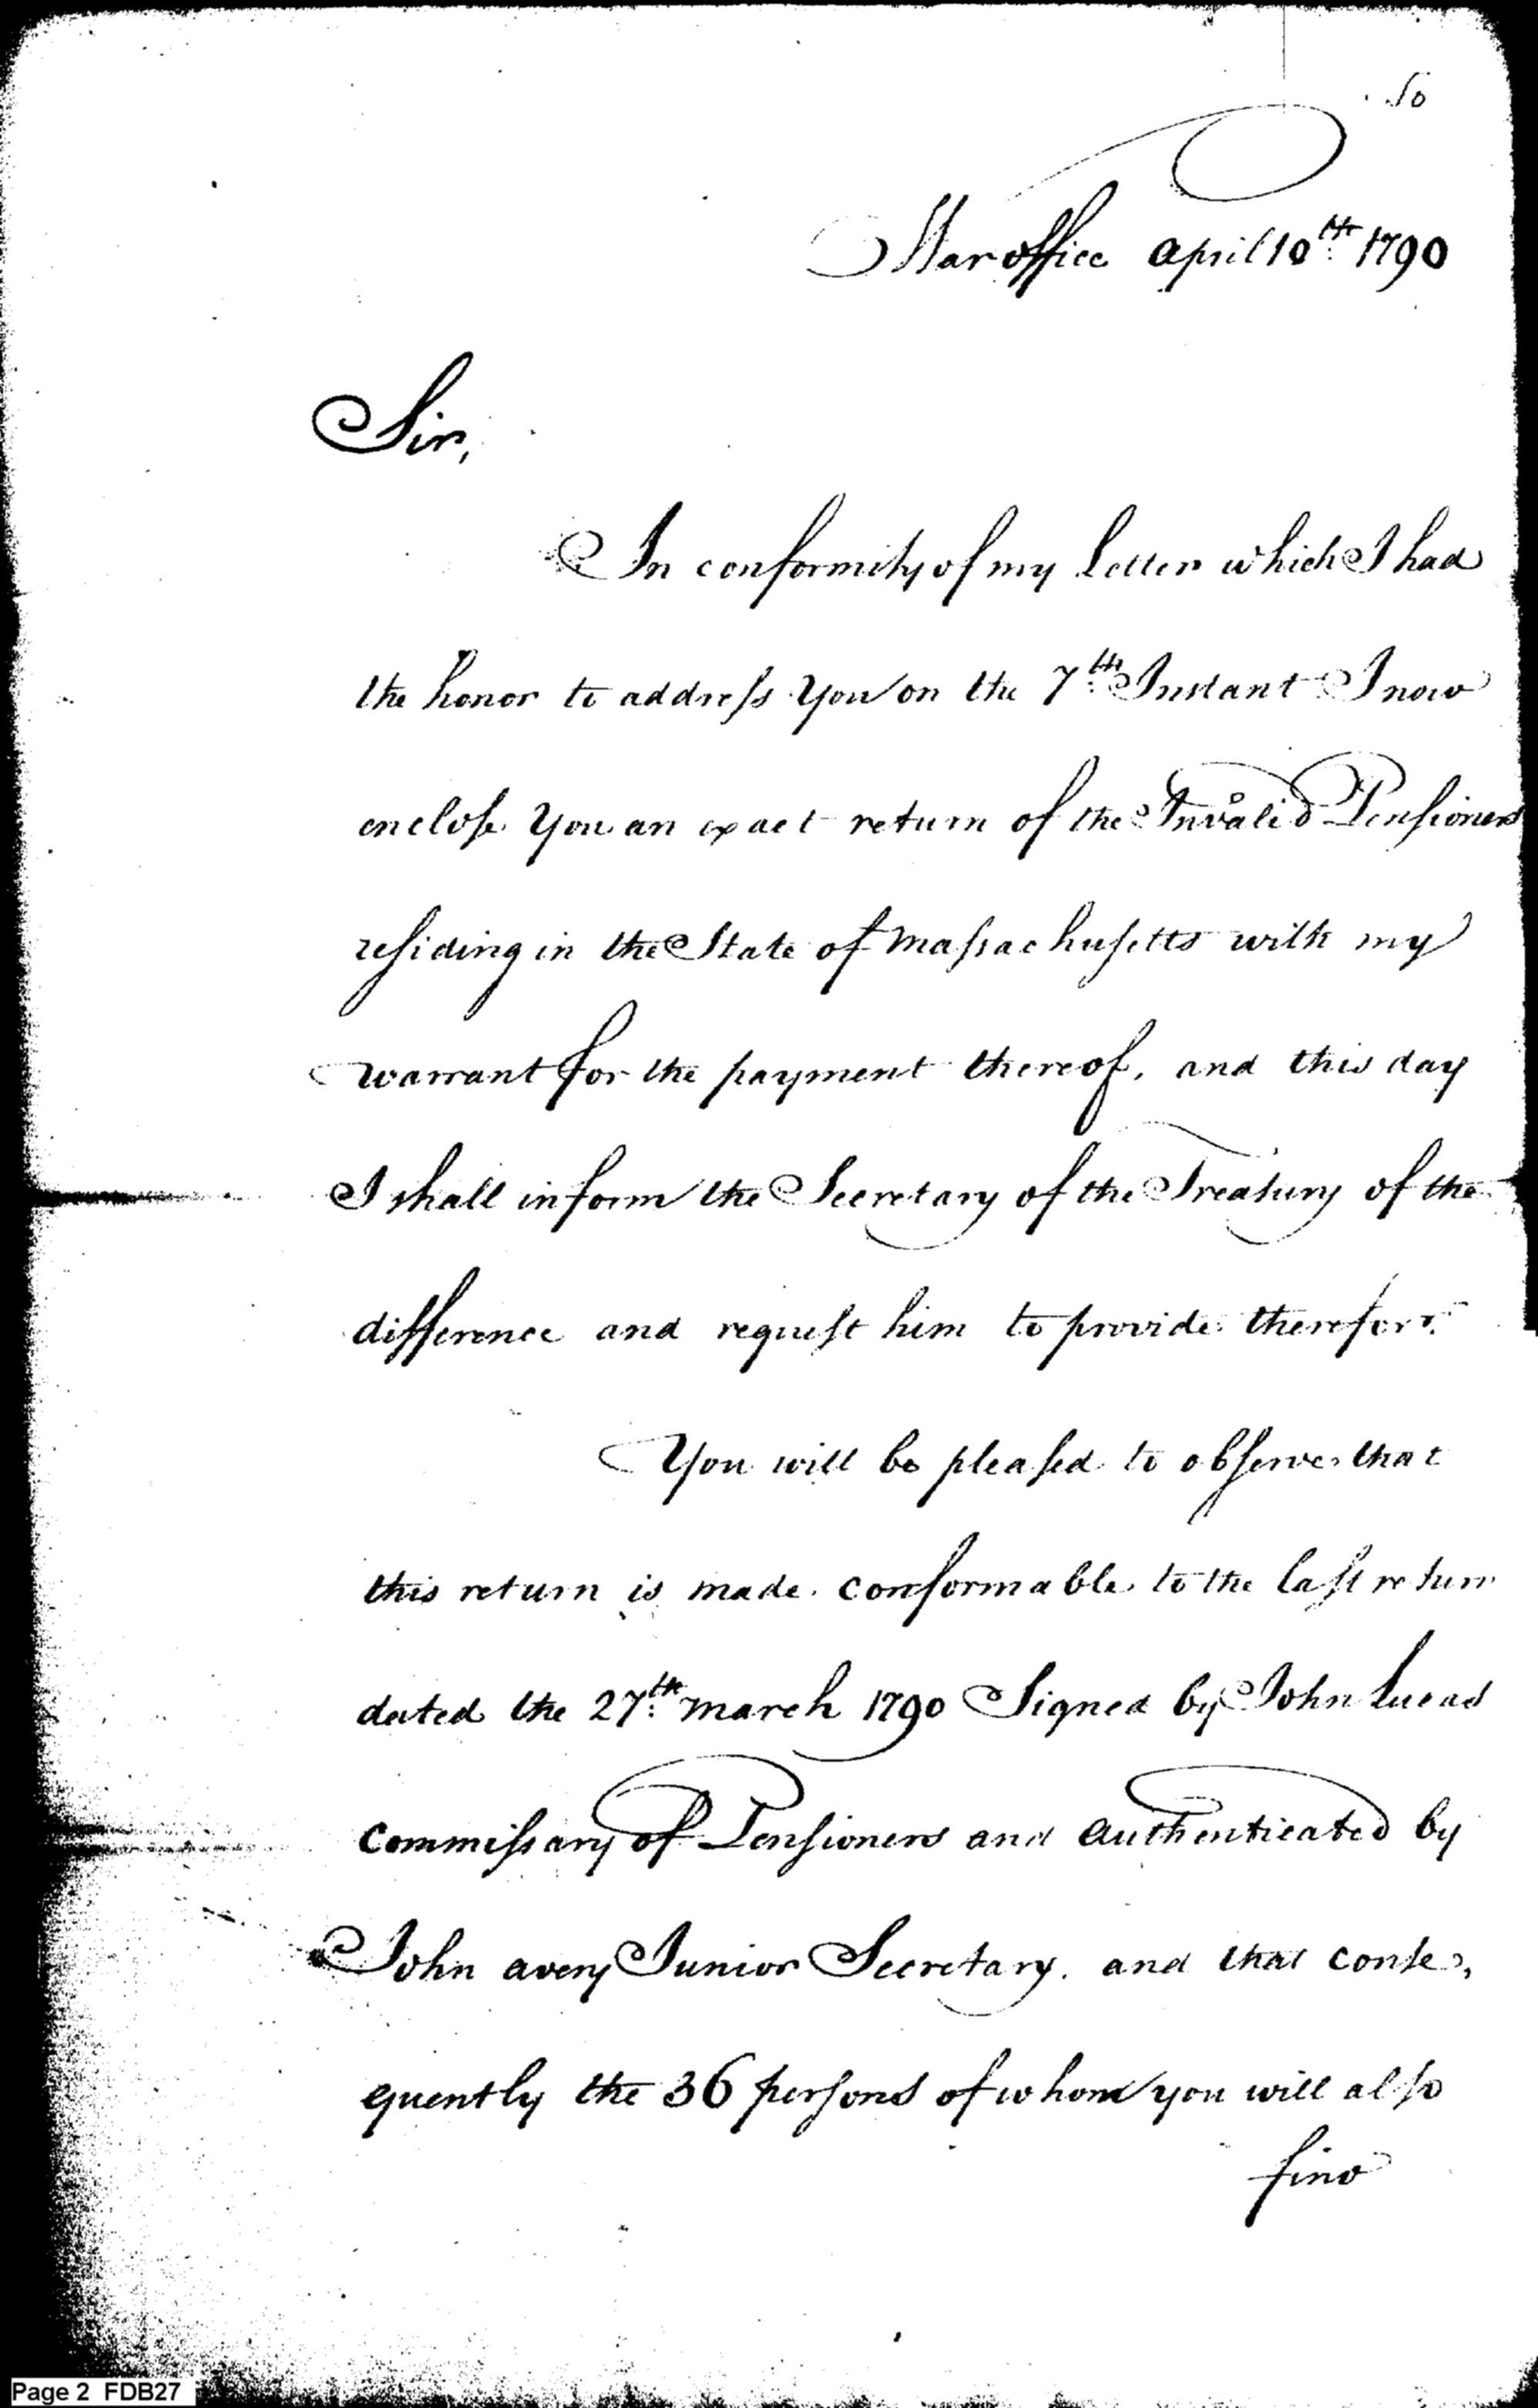 50
War office April 10th 1790
Sir,
In conformity of my Letter which I had
the honor to address You on the 7th Instant I now
enclose You an exact return of the Invalid Pensioners
residing in the State of Massachusetts with my
warrant for the payment thereof, and this day
I shall inform the Secretary of the Treasury of the
difference and request him to provide therefor.
You will be pleased to observe that
this return is made conformable to the last return
dated the 27th march 1790 Signed by John Lucas
Commissary of Pensioners and Authenticated by
John avery Junior Secretary. and that conse,
quently the 36 persons of whom you will also
find
Page 2 FDB27